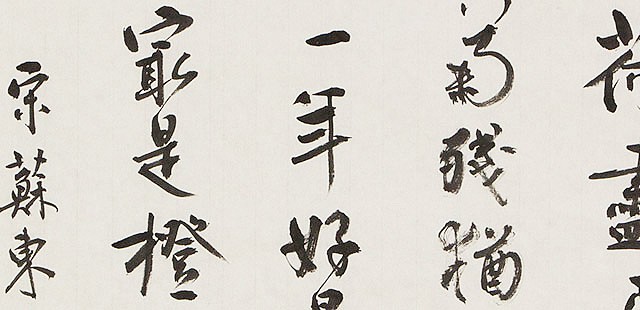 荷盡
菊殘猶
一年好
最是橙
宋蘇東